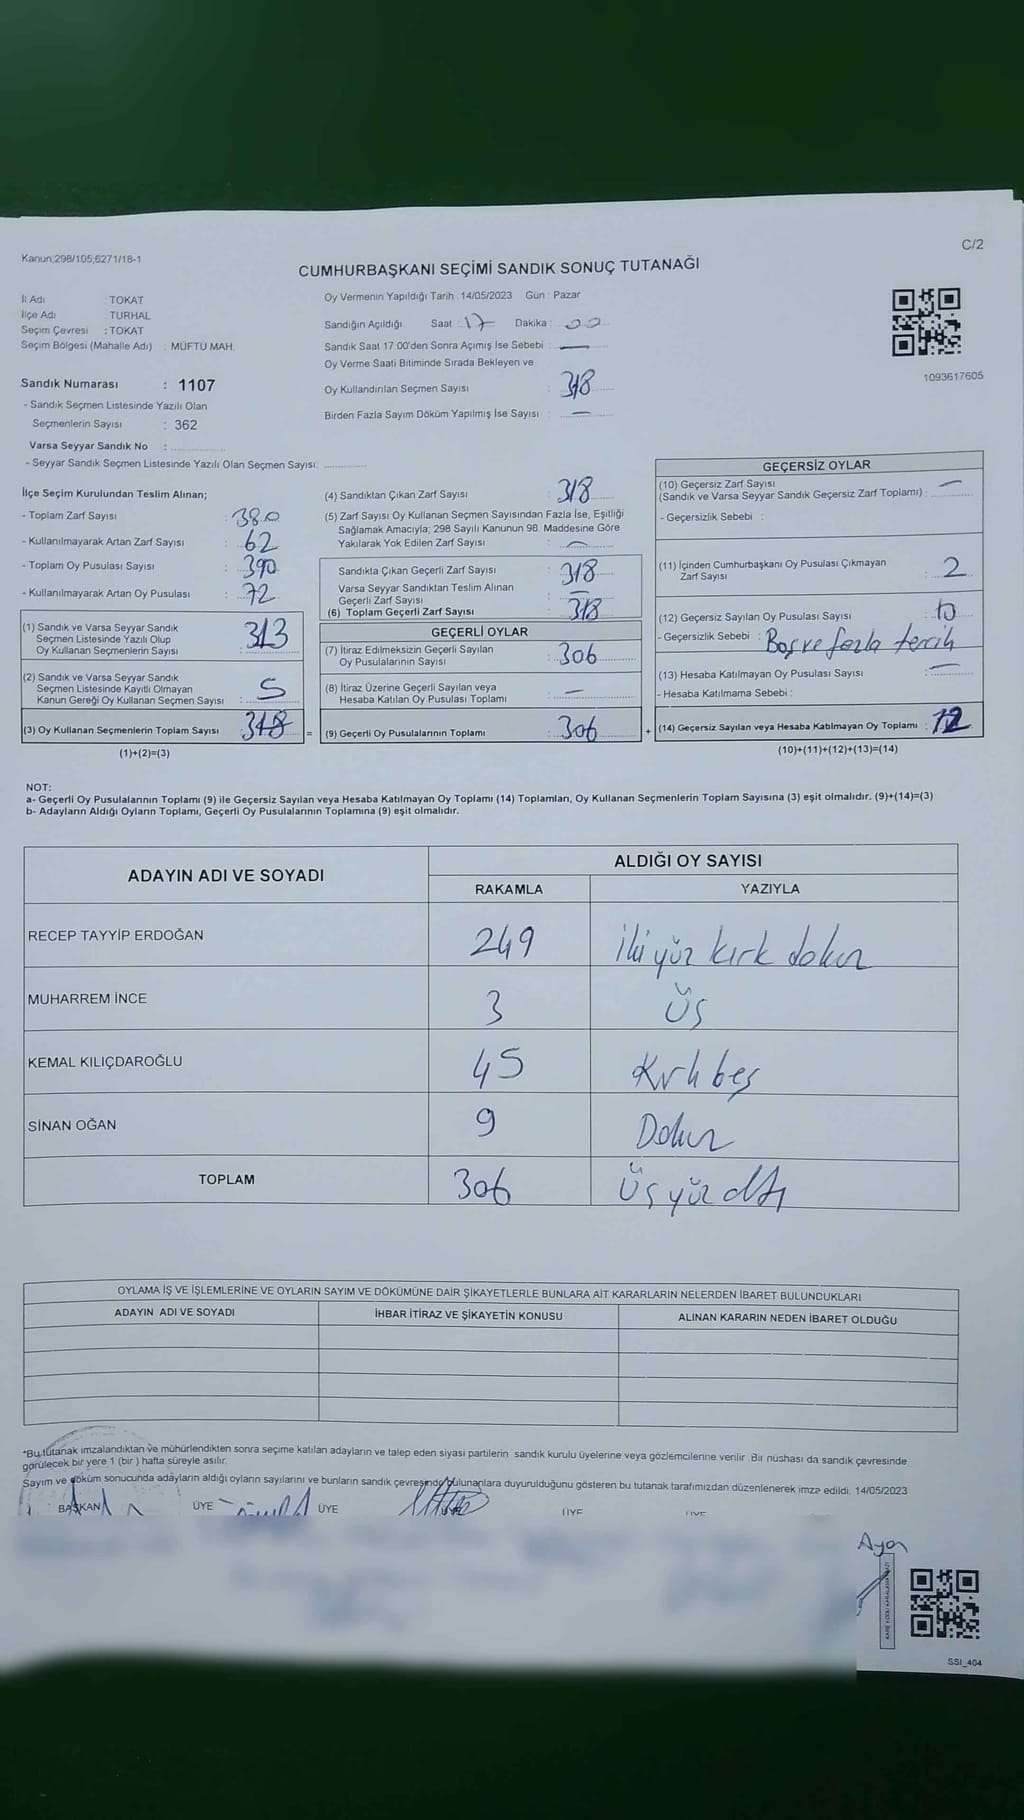 C/2
Kanun;298/105,6271/18-1
CUMHURBAŞKANI SEÇİMİ SANDIK SONUÇ TUTANAĞI
İl Adı : TOKAT
İlçe Adı : TURHAL
Seçim Çevresi : TOKAT
Seçim Bölgesi (Mahalle Adı) : MÜFTÜ MAH.
Sandık Numarası : 1107
- Sandık Seçmen Listesinde Yazılı Olan
Seçmenlerin Sayısı : 362
Varsa Seyyar Sandık No :
- Seyyar Sandık Seçmen Listesinde Yazılı Olan Seçmen Sayısı:
Oy Vermenin Yapıldığı Tarih : 14/05/2023 Gün : Pazar
Sandığın Açıldığı Saat : 17 Dakika : 00
Sandık Saat 17:00'den Sonra Açımış İse Sebebi : —
Oy Verme Saati Bitiminde Sırada Bekleyen ve
Oy Kullandırılan Seçmen Sayısı : 318
Birden Fazla Sayım Döküm Yapılmış İse Sayısı : —
1093617605
İlçe Seçim Kurulundan Teslim Alınan;
- Toplam Zarf Sayısı : 380
- Kullanılmayarak Artan Zarf Sayısı : 62
- Toplam Oy Pusulası Sayısı : 390
- Kullanılmayarak Artan Oy Pusulası : 72
(1) Sandık ve Varsa Seyyar Sandık
Seçmen Listesinde Yazılı Olup
Oy Kullanan Seçmenlerin Sayısı : 313
(2) Sandık ve Varsa Seyyar Sandık
Seçmen Listesinde Kayıtlı Olmayan
Kanun Gereği Oy Kullanan Seçmen Sayısı : 5
(3) Oy Kullanan Seçmenlerin Toplam Sayısı : 318
(1)+(2)=(3)
(4) Sandıktan Çıkan Zarf Sayısı : 318
(5) Zarf Sayısı Oy Kullanan Seçmen Sayısından Fazla İse, Eşitliği
Sağlamak Amacıyla; 298 Sayılı Kanunun 98. Maddesine Göre
Yakılarak Yok Edilen Zarf Sayısı : —
Sandıkta Çıkan Geçerli Zarf Sayısı : 318
Varsa Seyyar Sandıktan Teslim Alınan
Geçerli Zarf Sayısı : —
(6) Toplam Geçerli Zarf Sayısı : 318
GEÇERLİ OYLAR
(7) İtiraz Edilmeksizin Geçerli Sayılan
Oy Pusulalarının Sayısı : 306
(8) İtiraz Üzerine Geçerli Sayılan veya
Hesaba Katılan Oy Pusulası Toplamı : —
= (9) Geçerli Oy Pusulalarının Toplamı : 306
GEÇERSİZ OYLAR
(10) Geçersiz Zarf Sayısı
(Sandık ve Varsa Seyyar Sandık Geçersiz Zarf Toplamı) : —
- Geçersizlik Sebebi :
(11) İçinden Cumhurbaşkanı Oy Pusulası Çıkmayan
Zarf Sayısı : 2
(12) Geçersiz Sayılan Oy Pusulası Sayısı : 10
- Geçersizlik Sebebi : Boş ve fazla tercih
(13) Hesaba Katılmayan Oy Pusulası Sayısı : —
- Hesaba Katılmama Sebebi :
+ (14) Geçersiz Sayılan veya Hesaba Katılmayan Oy Toplamı : 12
(10)+(11)+(12)+(13)=(14)
NOT:
a- Geçerli Oy Pusulalarının Toplamı (9) ile Geçersiz Sayılan veya Hesaba Katılmayan Oy Toplamı (14) Toplamları, Oy Kullanan Seçmenlerin Toplam Sayısına (3) eşit olmalıdır. (9)+(14)=(3)
b- Adayların Aldığı Oyların Toplamı, Geçerli Oy Pusulalarının Toplamına (9) eşit olmalıdır.
ADAYIN ADI VE SOYADI ALDIĞI OY SAYISI
RAKAMLA YAZIYLA
RECEP TAYYİP ERDOĞAN 249 İki yüz kırk dokuz
MUHARREM İNCE 3 Üç
KEMAL KILIÇDAROĞLU 45 Kırk beş
SİNAN OĞAN 9 Dokuz
TOPLAM 306 Üç yüz altı
OYLAMA İŞ VE İŞLEMLERİNE VE OYLARIN SAYIM VE DÖKÜMÜNE DAİR ŞİKAYETLERLE BUNLARA AİT KARARLARIN NELERDEN İBARET BULUNDUKLARI
ADAYIN ADI VE SOYADI İHBAR İTİRAZ VE ŞİKAYETİN KONUSU ALINAN KARARIN NEDEN İBARET OLDUĞU
*Bu tutanak imzalandıktan ve mühürlendikten sonra seçime katılan adayların ve talep eden siyasi partilerin sandık kurulu üyelerine veya gözlemcilerine verilir. Bir nüshası da sandık çevresinde
görülecek bir yere 1 (bir ) hafta süreyle asılır.
Sayım ve döküm sonucunda adayların aldığı oyların sayılarını ve bunların sandık çevresinde bulunanlara duyurulduğunu gösteren bu tutanak tarafımızdan düzenlenerek imza edildi. 14/05/2023
BAŞKAN ÜYE ÜYE ÜYE ÜYE
SSI_404